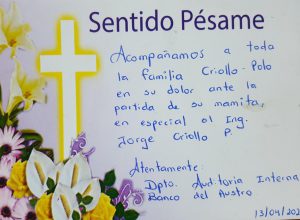 Sentido Pésame
Acompañamos a toda
la familia Criollo-Polo
en su dolor ante la
partida de su mamita,
en especial al Ing.
Jorge Criollo P.
Atentamente:
Dpto. Auditoria Interna
Banco del Austro
13/04/202